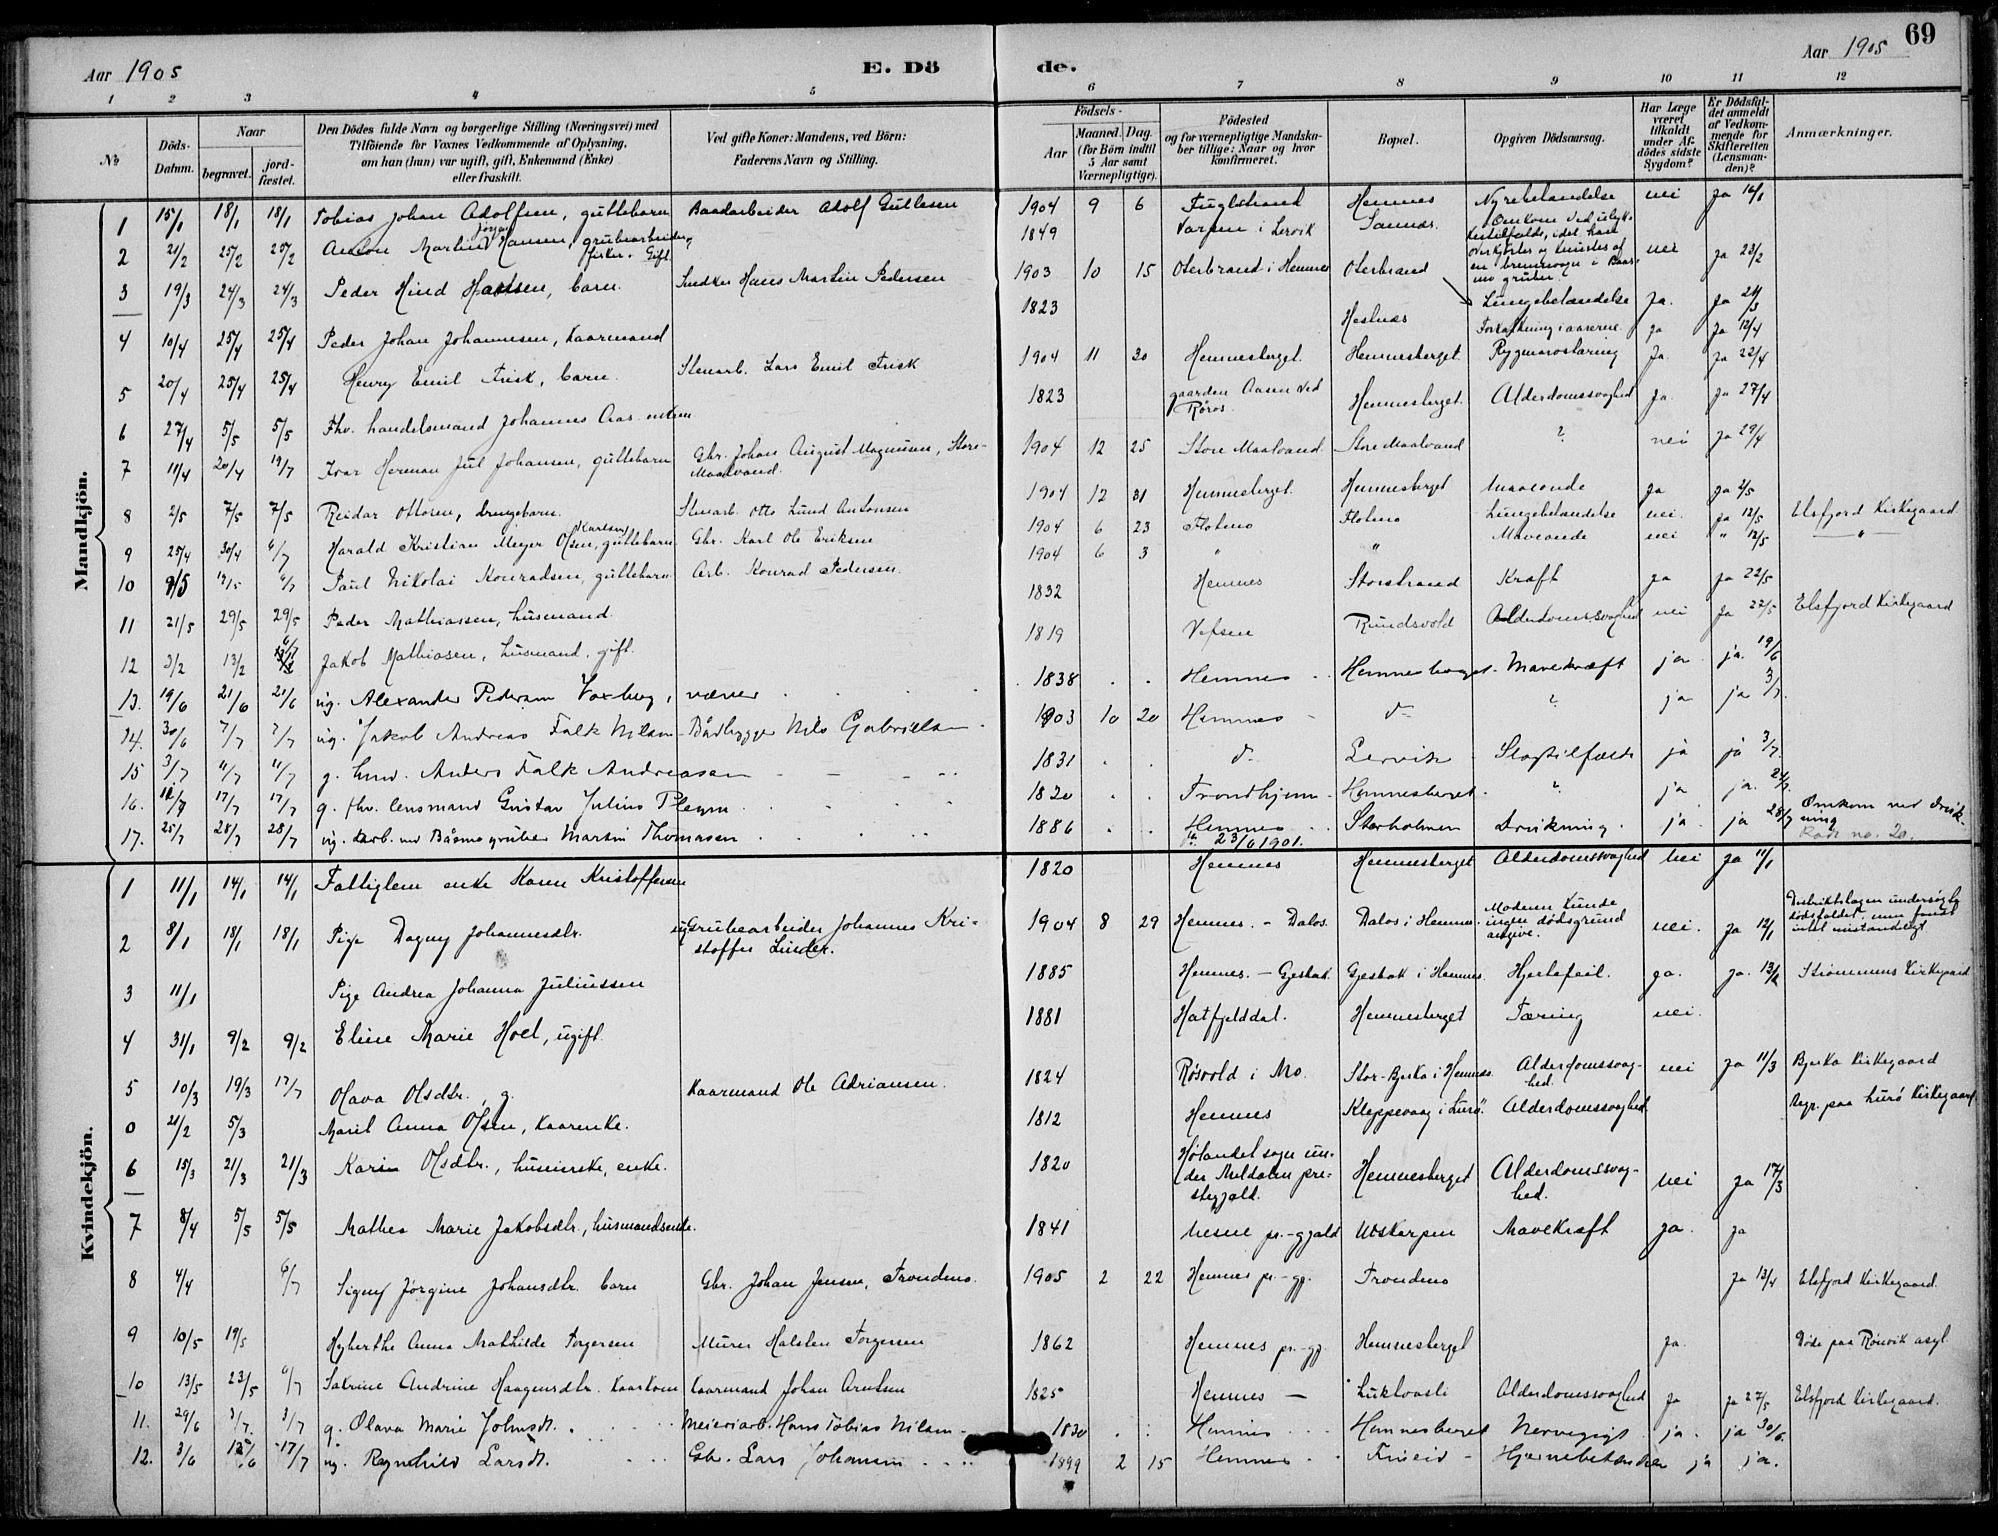 69
Aar 1905
E. Dö
de.
Aar 1905
1 2 3 4 5 6 7 8 9 10 11 12
No
Döds-Datum.
Naar
begravet.
jord-fæstet.
Den Dödes fulde Navn og borgerlige Stilling (Næringsvei) med
Tilföiende for Voxnes Vedkommende af Oplysning,
om han (hun) var ugift, gift, Enkemand (Enke)
eller fraskilt.
Ved gifte Koner: Mandens, ved Börn:
Faderens Navn og Stilling.
Födsels-
Aar
Maaned. Dag.
(for Börn indtil
5 Aar samt
Værnepligtige).
Födested
og for værnepligtige Mandska-
ber tillige: Naar og hvor
konfirmeret.
Bopæl.
Opgiven Dödsaarsag.
Har Læge
været
tilkaldt
under Af-
dödes sidste
Sygdom?
Er Dödsfal-
det anmeldt
af Vedkom-
mende for
Skifteretten
(Lensman-
den)?
Anmærkninger.
Mandkjön.
1 15/1 18/1 18/1 Tobias Johan Adolfsen, guttebarn Baadarbeider Adolf Gullesen 1904 9 6 Fuglstrand Hemnes Nyrebetændelse nei Ja 16/1
2 21/2 25/2 25/2 Anton Martin Jørgen Hansen, grubearbeider, fisker. Gift 1849 Varpen i Lervik Omkom ved ulyk-
kestilfælde, idet han
overkjørtes og knustes af
en brunsvogn i Baas-
mo gruber. nei Ja 23/2
3 19/3 24/3 24/3 Peder Hind Hansen, barn Hans Martin Pedersen 1903 10 15 Oterbrand i Hemnes Oterbrand Lungebetændelse Ja. Ja 21/3
4 10/4 25/4 25/4 Peder Johan Johannesen, kaarmand 1823 Forkalkning i aarerne. ja Ja 12/4
5 20/4 25/4 25/4 Henry Emil Frisk, barn. Stenarb. Lars Emil Frisk 1904 11 30 Hemnesberget. Hemnesberget Rygmarvstæring Ja. Ja 22/4
6 27/4 5/5 5/5 Fhv. handelsmand Johannes Aas. enkem 1823 gaarden Aasen ved
Røros. Hemnesberget. Alderdomssvaghed Ja. Ja 27/4
7 11/4 20/4 19/7 Ivar Herman Jul Johansen, guttebarn Gbr. Johan August Magnusen, Store-
Maalvand. 1904 12 25 Store Maalvand Store Maalvand ? nei Ja 29/4
8 2/5 7/5 7/5 Reidar Ottosen, drengebarn. Stenarb. Otto Lund Antonsen 1904 12 31 Hemnesberget. Hemnesberget Maveonde Ja Ja 2/5
9 25/4 30/4 6/7 Harald Kristian Meyer Olsen, Karlsen guttebarn Gbr. Karl Ole Eriksen 1904 6 23 Flotmo Flotmo Lungebetændelse nei. ja 12/5 Elsfjord Kirkegaard
10 9/5 6/7 Paul Nikolai Konradsen, guttebarn Arb. Konrad Pedersen. 1904 6 3 " " Maveonde nei " 12/5 —"—
11 21/5 29/5 29/5 Peder Mathiassen, husmand. 1832 Hemnes Storstrand Kræft Ja Ja 22/5
12 3/2 13/2 6/7 Jakob Mathiasen, husmand. gift 1819 Vefsen Rundsvold Alderdomssvaghed nei Ja 22/5 Elsfjord Kirkegaard
13. 19/6 21/6 21/6 ug. Alexander Pedersen 1838 Hemnes Hemnesberget. Mavekræft ja ja. 19/6
14. 30/6 7/7 7/7 ug. Jakob Andreas Falk Nilsen Bådbygger Nils Gabrielsen 1903 10 20 Hemnes do ? ja ja 3/7
15 3/7 11/7 11/7 g. hmd. Anders Falk Andreasen 1831 do Lervik Slagtilfælde ja ja 3/7
16. 17/7 17/7 g. fhv. lensmand Gustav Julius Pleym 1820 Trondhjem Hemnesberget. ? ja ja.
17. 25/7 28/7 28/7 ug. arb. ved Båsmo gruber Martin Thomasen 1886 Hemnes
23/6 1901. Storholmen Drukning. ja ja 28/7 Omkom ved Druk-
ning
no. 20.
Kvindekjön.
1 11/1 14/1 14/1 Fattiglem enke Karen Kristoffersen 1820 Hemnes Hemnesberget Alderdomssvaghed Nei Ja 11/1
2 8/1 18/1 18/1 Pige Dagny Johannesdtr. Grubearbeider Johannes Kri-
stoffer 1904 8 29 Hemnes. - Dalos. Dalos i Hemnes. Moderen kunde
ingen dødsgrund
angive. nei. Ja 12/1 Distriktslægen undersøgte
dødsfaldet, men fandt
intet mistænkeligt
3 11/1 Pige Andrea Johanna Juliussen 1885 Hemnes. - Gesbak Gjesbak i Hemnes. Hjertefeil. ja. ja. Strømmens Kirkegaard
4 31/1 9/2 9/2 Eline Marie Hoel, ugift. 1881 Hatfjelddal. Hemnesberget Tæring nei.
5 10/3 19/3 17/7 Olava Olsdtr., g. Kaarmand Ole Adriansen. 1824 Røsvold i Mo. Stor-Bjerka i Hemnes. Alderdomssvag-
hed. nei Ja 11/3 Bjerka Kirkegaard
0 21/2 5/3 Marit Anna Olsen, kaarenke. 1812 Hemnes Kleppevaag i Lurø. Alderdomssvaghed. paa Lurø Kirkegaard.
6 15/3 21/3 21/3 Karin Olsdtr., enke. 1820 Hølandet sogn un-
der Meldalen pre-
stegjæld. Hemnesberget Alderdomssvag-
hed. nei Ja 17/3
7 8/4 5/5 5/5 Mathea Marie Jakobsdtr., husmandsenke. 1841 Nesne pr.-gjæld Utskarpen Mavekræft Ja. Ja
8 4/4 6/7 Signy Jørgine Johansdtr. barn Gbr. Johan Jensen, Trondmo. 1905 2 22 Hemnes pr-gj. Trondmo Ja 13/4 Elsfjord Kirkegaard.
9 10/5 19/5 Hyberthe Anna Mathilde Torgersen Murer Halsten Torgersen 1862 Hemnes pr.-gj. Hemnesberget Ja. Døde paa Rønvik asyl.
10 13/5 23/5 6/7 Sabrine Andrine Haagensdtr. Kaarkone Kaarmand Johan Arntsen 1825 Hemnes — Alderdomssvaghed Ja Ja 27/5 Elsfjord Kirkegaard.
11. 29/6 3/7 3/7 g. Olava Marie Johnsdt. Meieriarb. Hans Tobias Nilsen 1830 Hemnes Hemnesberget Nervegigt ja. ja 30/6.
12. 3/6 17/7 ug. Ragnhild Larsdt. Gbr. Lars Johansen 1899 2 15 Hemnes Fineid Hjernebetændelse ja ja.